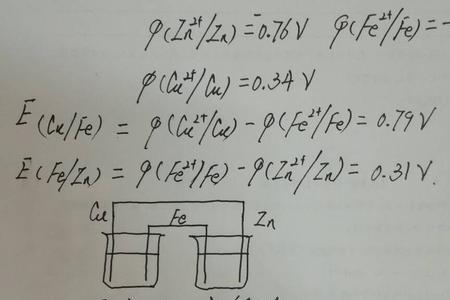 φ(Zn²⁺/Zn) = -0.76 V φ(Fe²⁺/Fe) = -
φ(Cu²⁺/Cu) = 0.34 V
E(Cu/Fe) = φ(Cu²⁺/Cu) - φ(Fe²⁺/Fe) = 0.79 V
E(Fe/Zn) = φ(Fe²⁺/Fe) - φ(Zn²⁺/Zn) = 0.31 V.
Cu Fe Zn